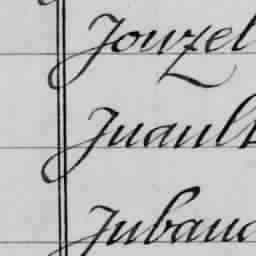 Jouzel
Juault
Jubau